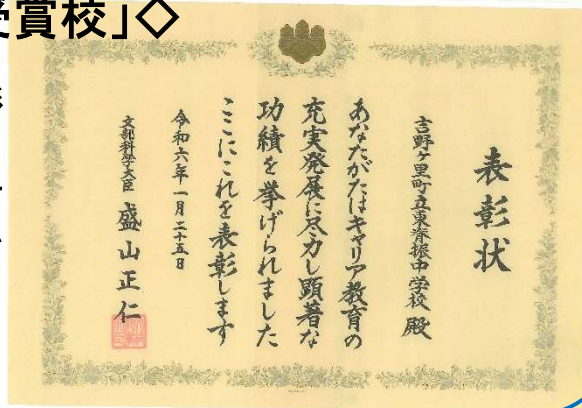 受賞校」◇
表彰状
吉野ヶ里町立東脊振中学校 殿
あなたがたはキャリア教育の
充実発展に尽力し顕著な
功績を挙げられました
ここにこれを表彰します
令和六年一月二十五日
文部科学大臣 盛山正仁